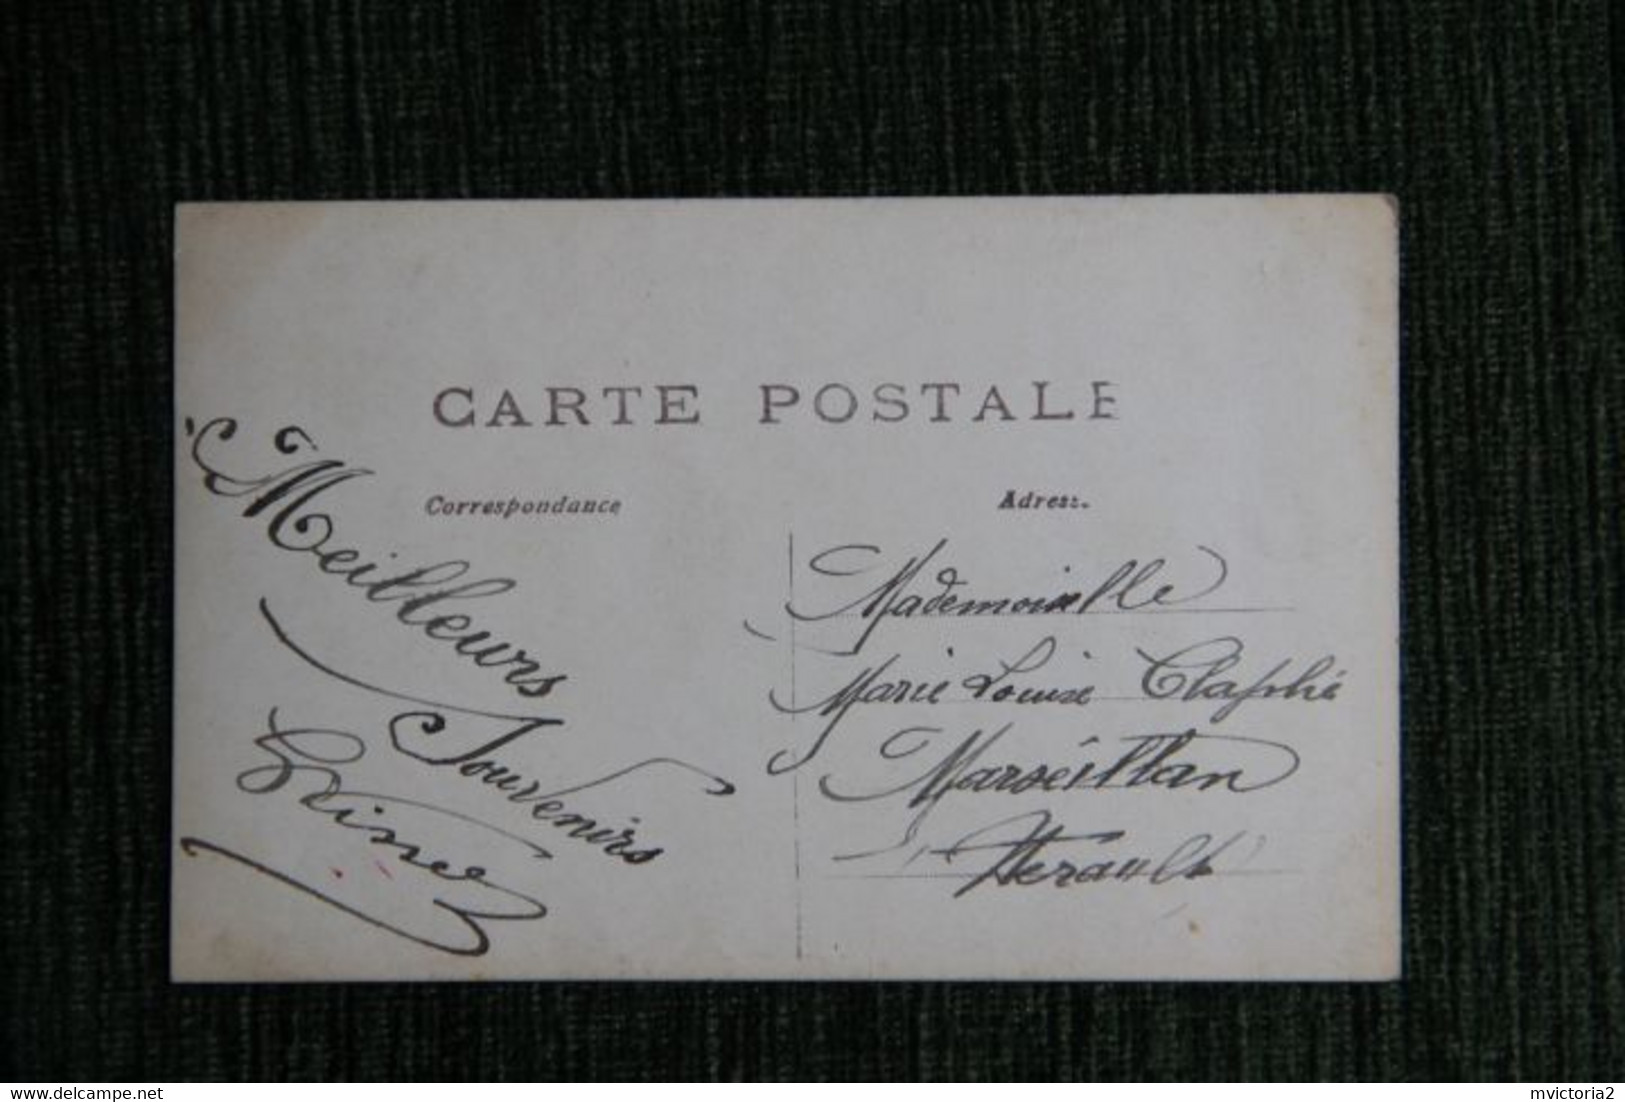 CARTE POSTALE
Correspondance
Adresse
Meilleurs
Souvenirs
Mademoiselle
Marie Louise Claphé
Marséillan
Herault
www.delcampe.net
mvictoria2